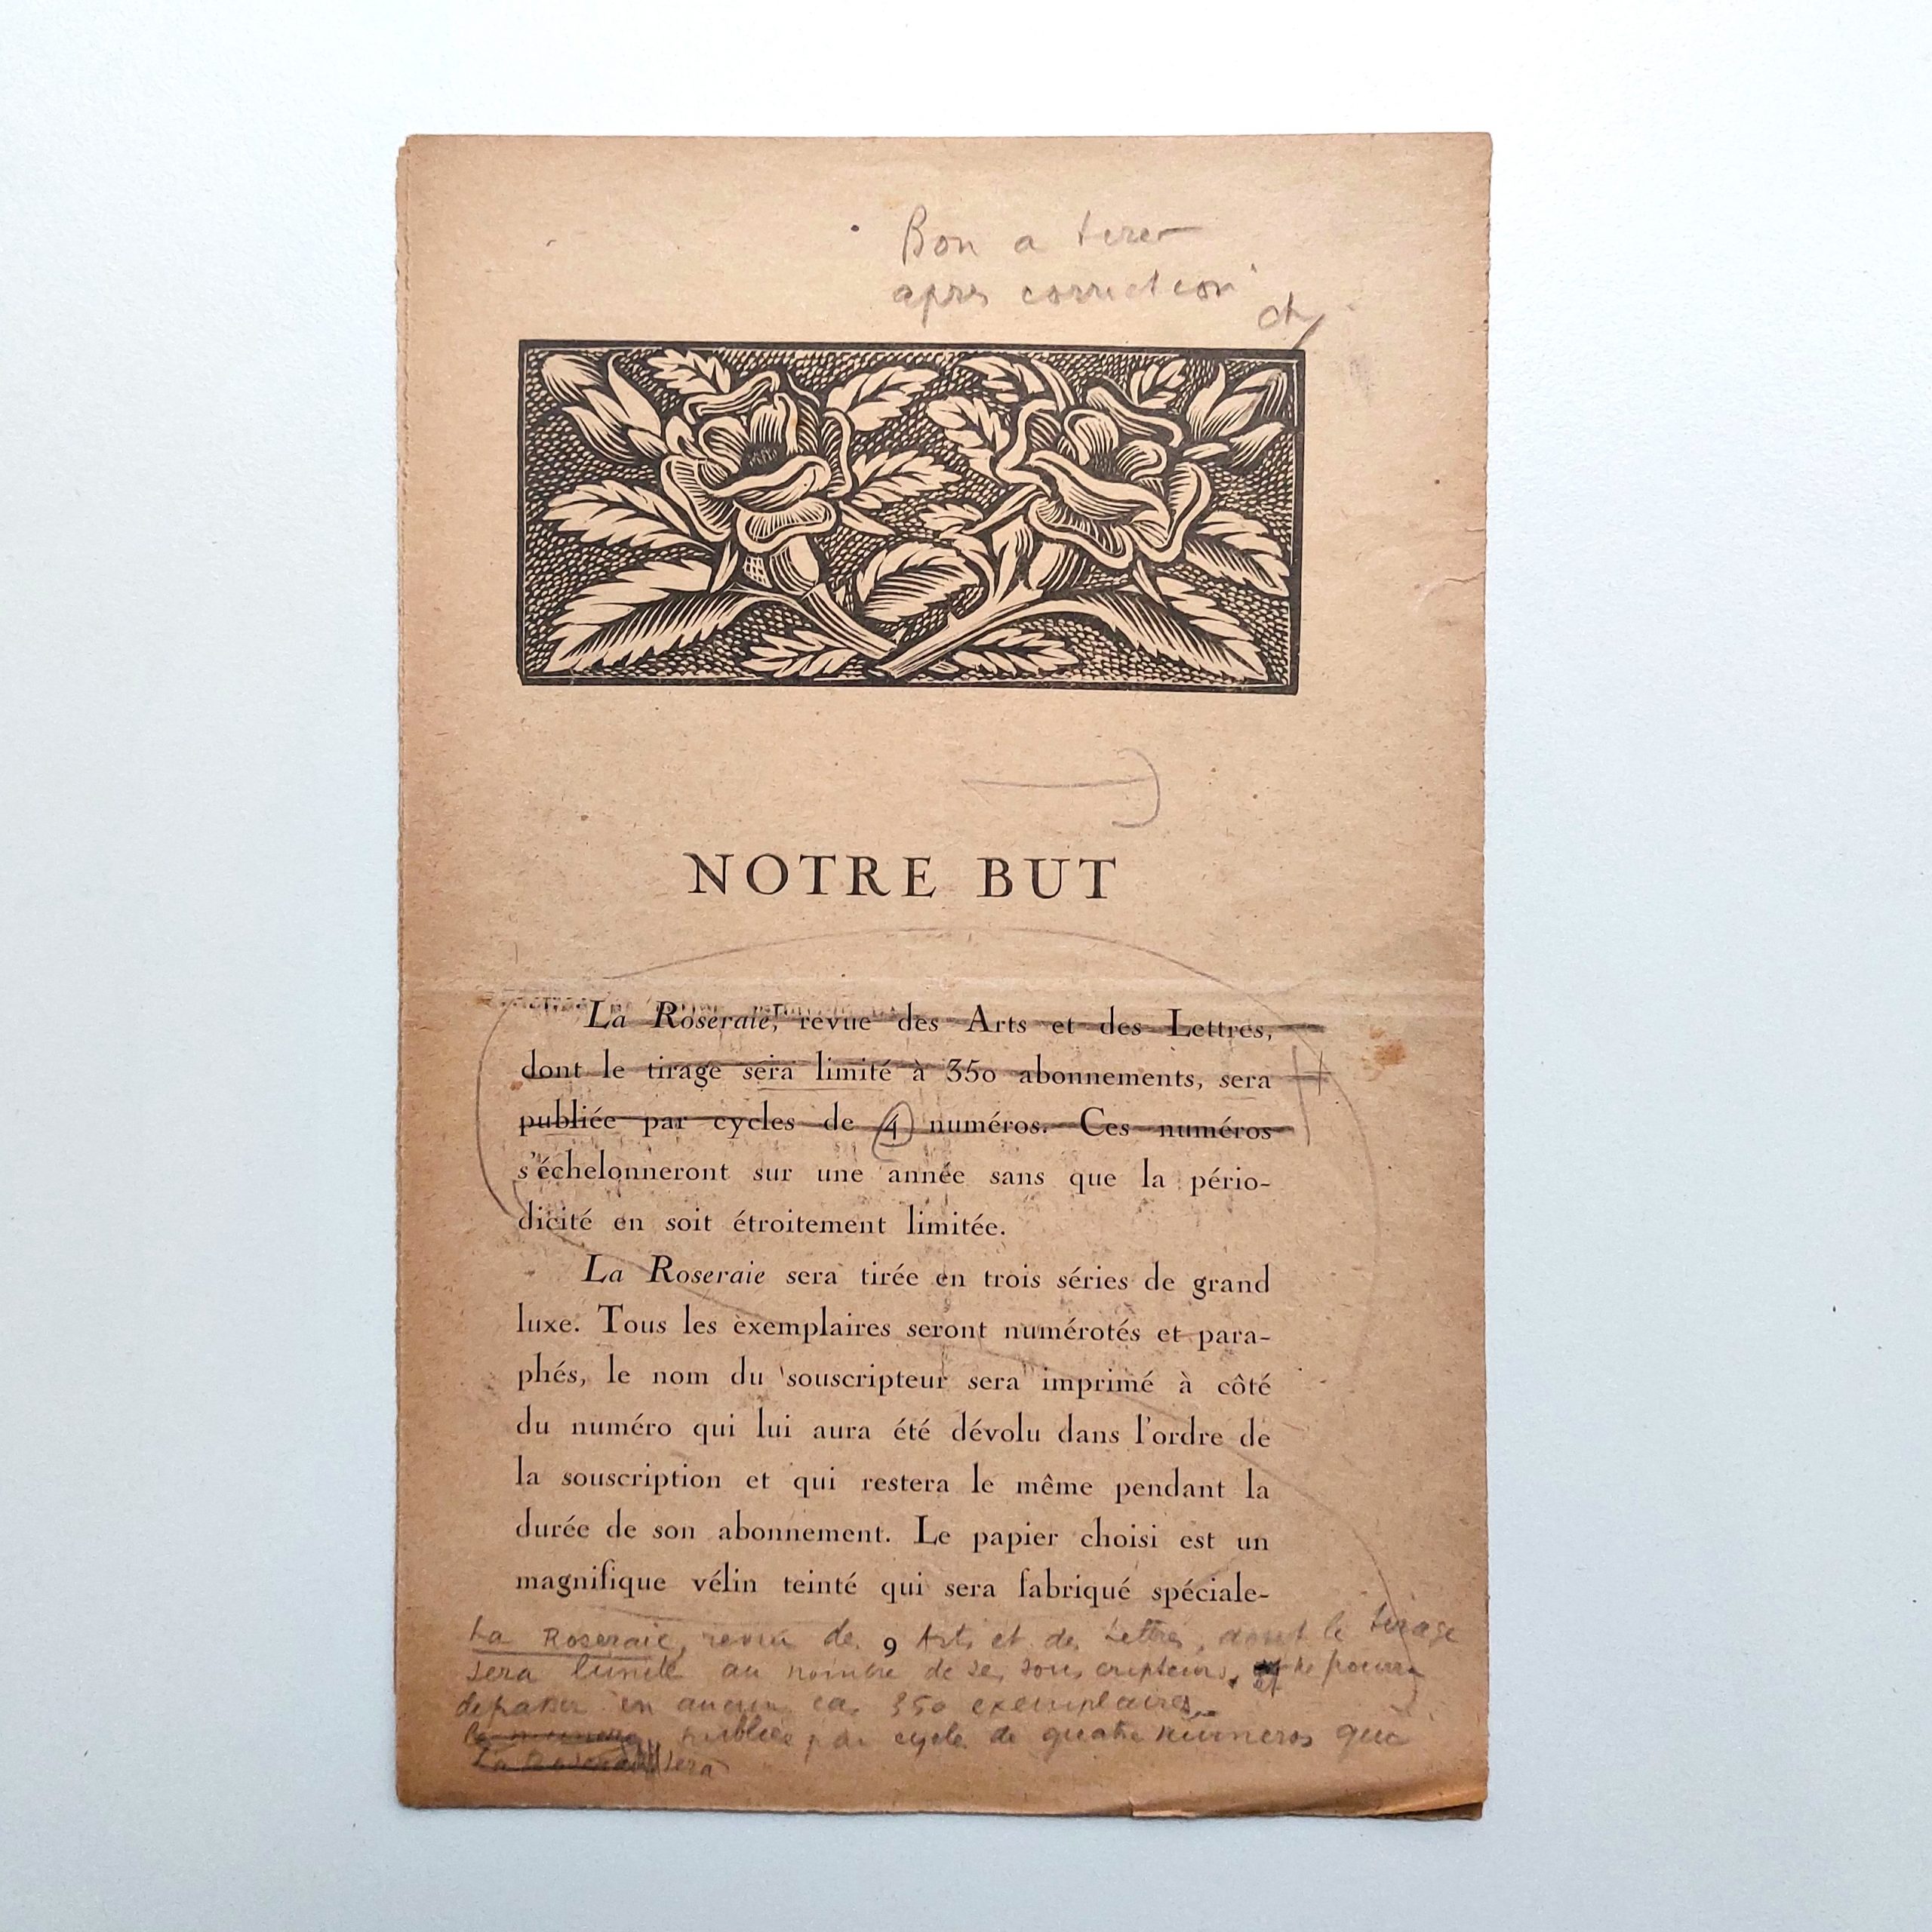 Bon a tirer
apres correction
NOTRE BUT
La Roseraie, revue des Arts et des Lettres,
dont le tirage sera limité à 350 abonnements, sera
publiée par cycles de 4 numéros. Ces numéros
s'échelonneront sur une année sans que la pério-
dicité en soit étroitement limitée.
La Roseraie sera tirée en trois séries de grand
luxe. Tous les exemplaires seront numérotés et para-
phés, le nom du souscripteur sera imprimé à côté
du numéro qui lui aura été dévolu dans l'ordre de
la souscription et qui restera le même pendant la
durée de son abonnement. Le papier choisi est un
magnifique vélin teinté qui sera fabriqué spéciale-
9
La Roseraie, revue des Arts et des Lettres, dont le tirage
sera limité au nombre de ses souscripteurs, et ne pourra
depasser en aucun cas 350 exemplaires
publiée par cycle de quatre numeros que
La Roseraie sera